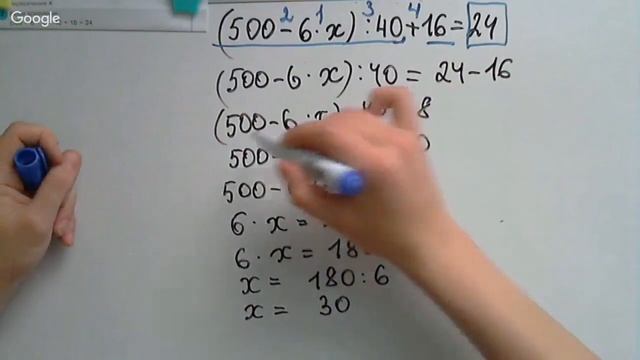 Google
+ 16 = 24
2 1 3 4
(500-6·x):40+16=24
(500-6·x):40 = 24-16
(500-6·x) 8
500-
500-
6·x =
6·x = 18
x = 180:6
x = 30